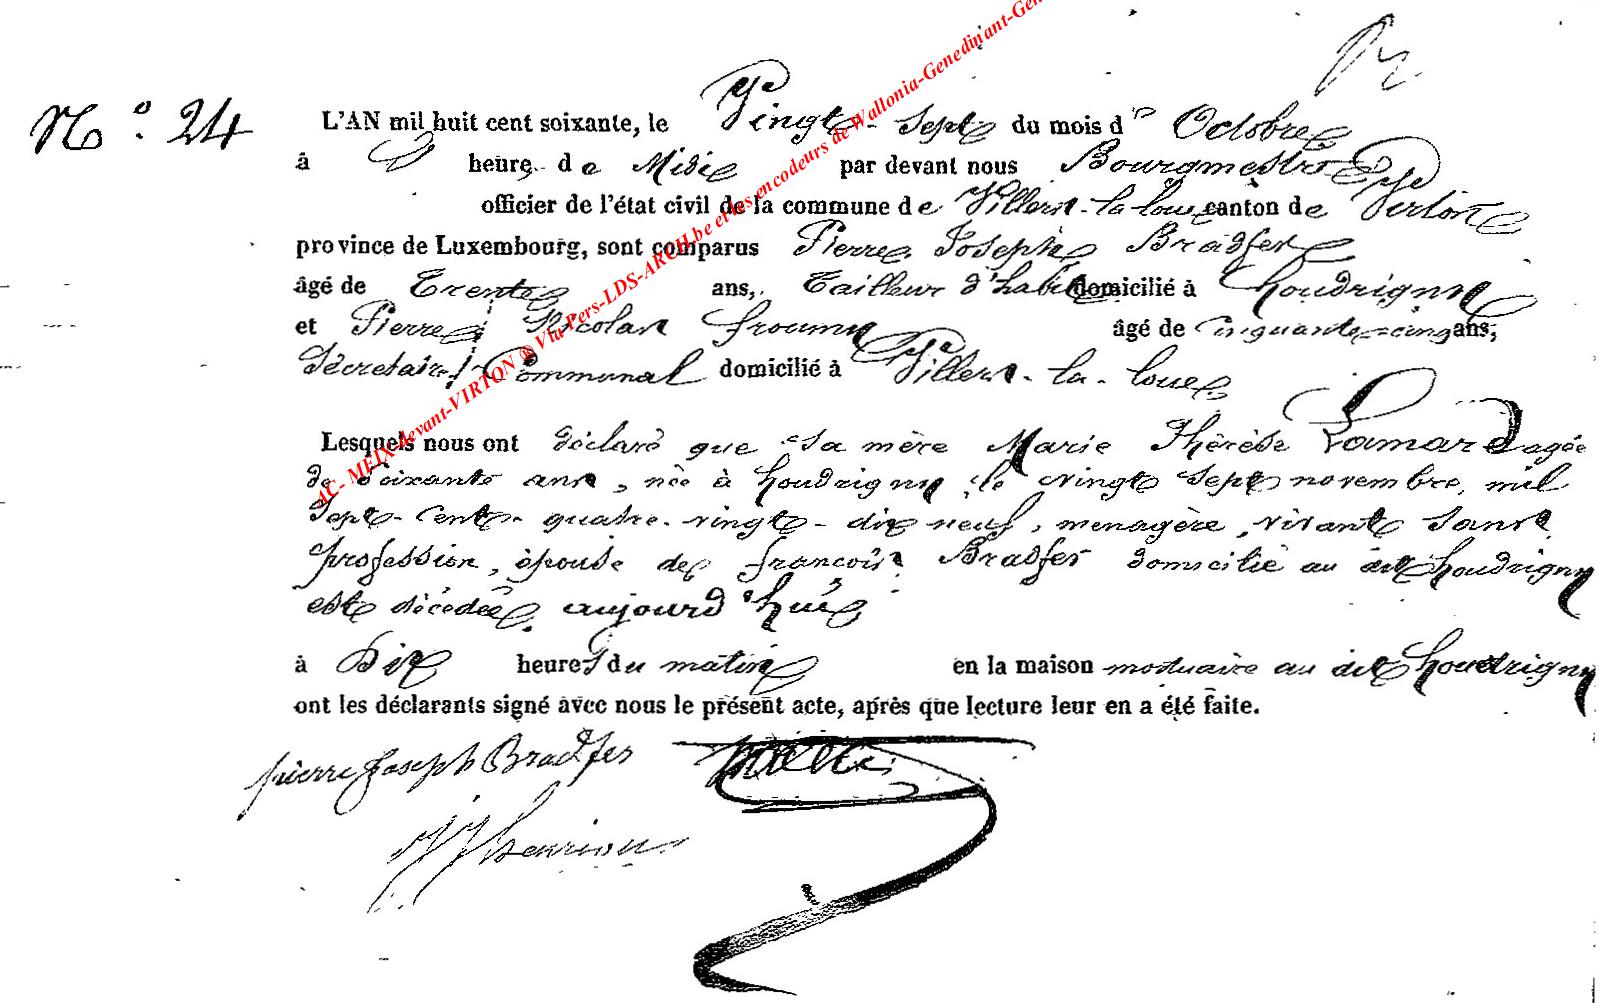 N° 24
L'AN mil huit cent soixante, le Vingt-Sept du mois d' Octobre
à heure de Midi par devant nous Bourgmestre
officier de l'état civil de la commune de Villers-la-loue canton de Virton
province de Luxembourg, sont comparus Pierre Joseph Bradfer
âgé de Trente ans, Tailleur d'habits domicilié à houdrigny
et Pierre Nicolas âgé de cinquante-cinq ans,
Secrétaire Communal domicilié à Villers-la-loue
Lesquels nous ont déclaré que sa mère Marie Thérèse Lamard agée
de soixante ans, née à houdrigny, le vingt sept novembre, mil
sept-cent-quatre-vingt-dix neuf, menagère, vivant sans
profession, épouse de françois Bradfer domicilié au dit houdrigny
est décédée aujourd'hui
à Dix heures du matin en la maison mortuaire au dit houdrigny
ont les déclarants signé avec nous le présent acte, après que lecture leur en a été faite.
pierre Joseph Bradfer
AC- MEIX-devant-VIRTON ® Via Pers-LDS-ARCH.be et les encodeurs de Wallonia-Genedinant-Gen